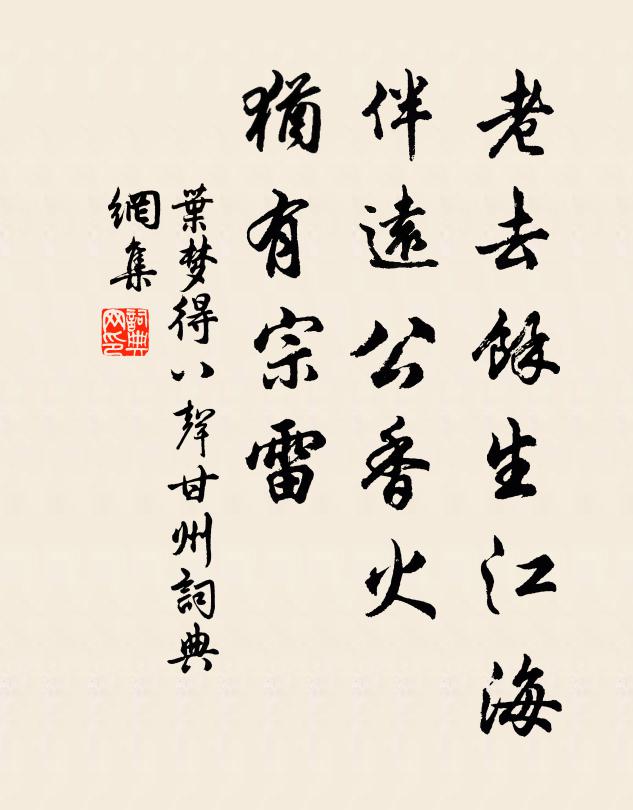 老去餘生江海
伴遠公香火
猶有宗雷
葉梦得八聲甘州詞典
網集
詞典
网印